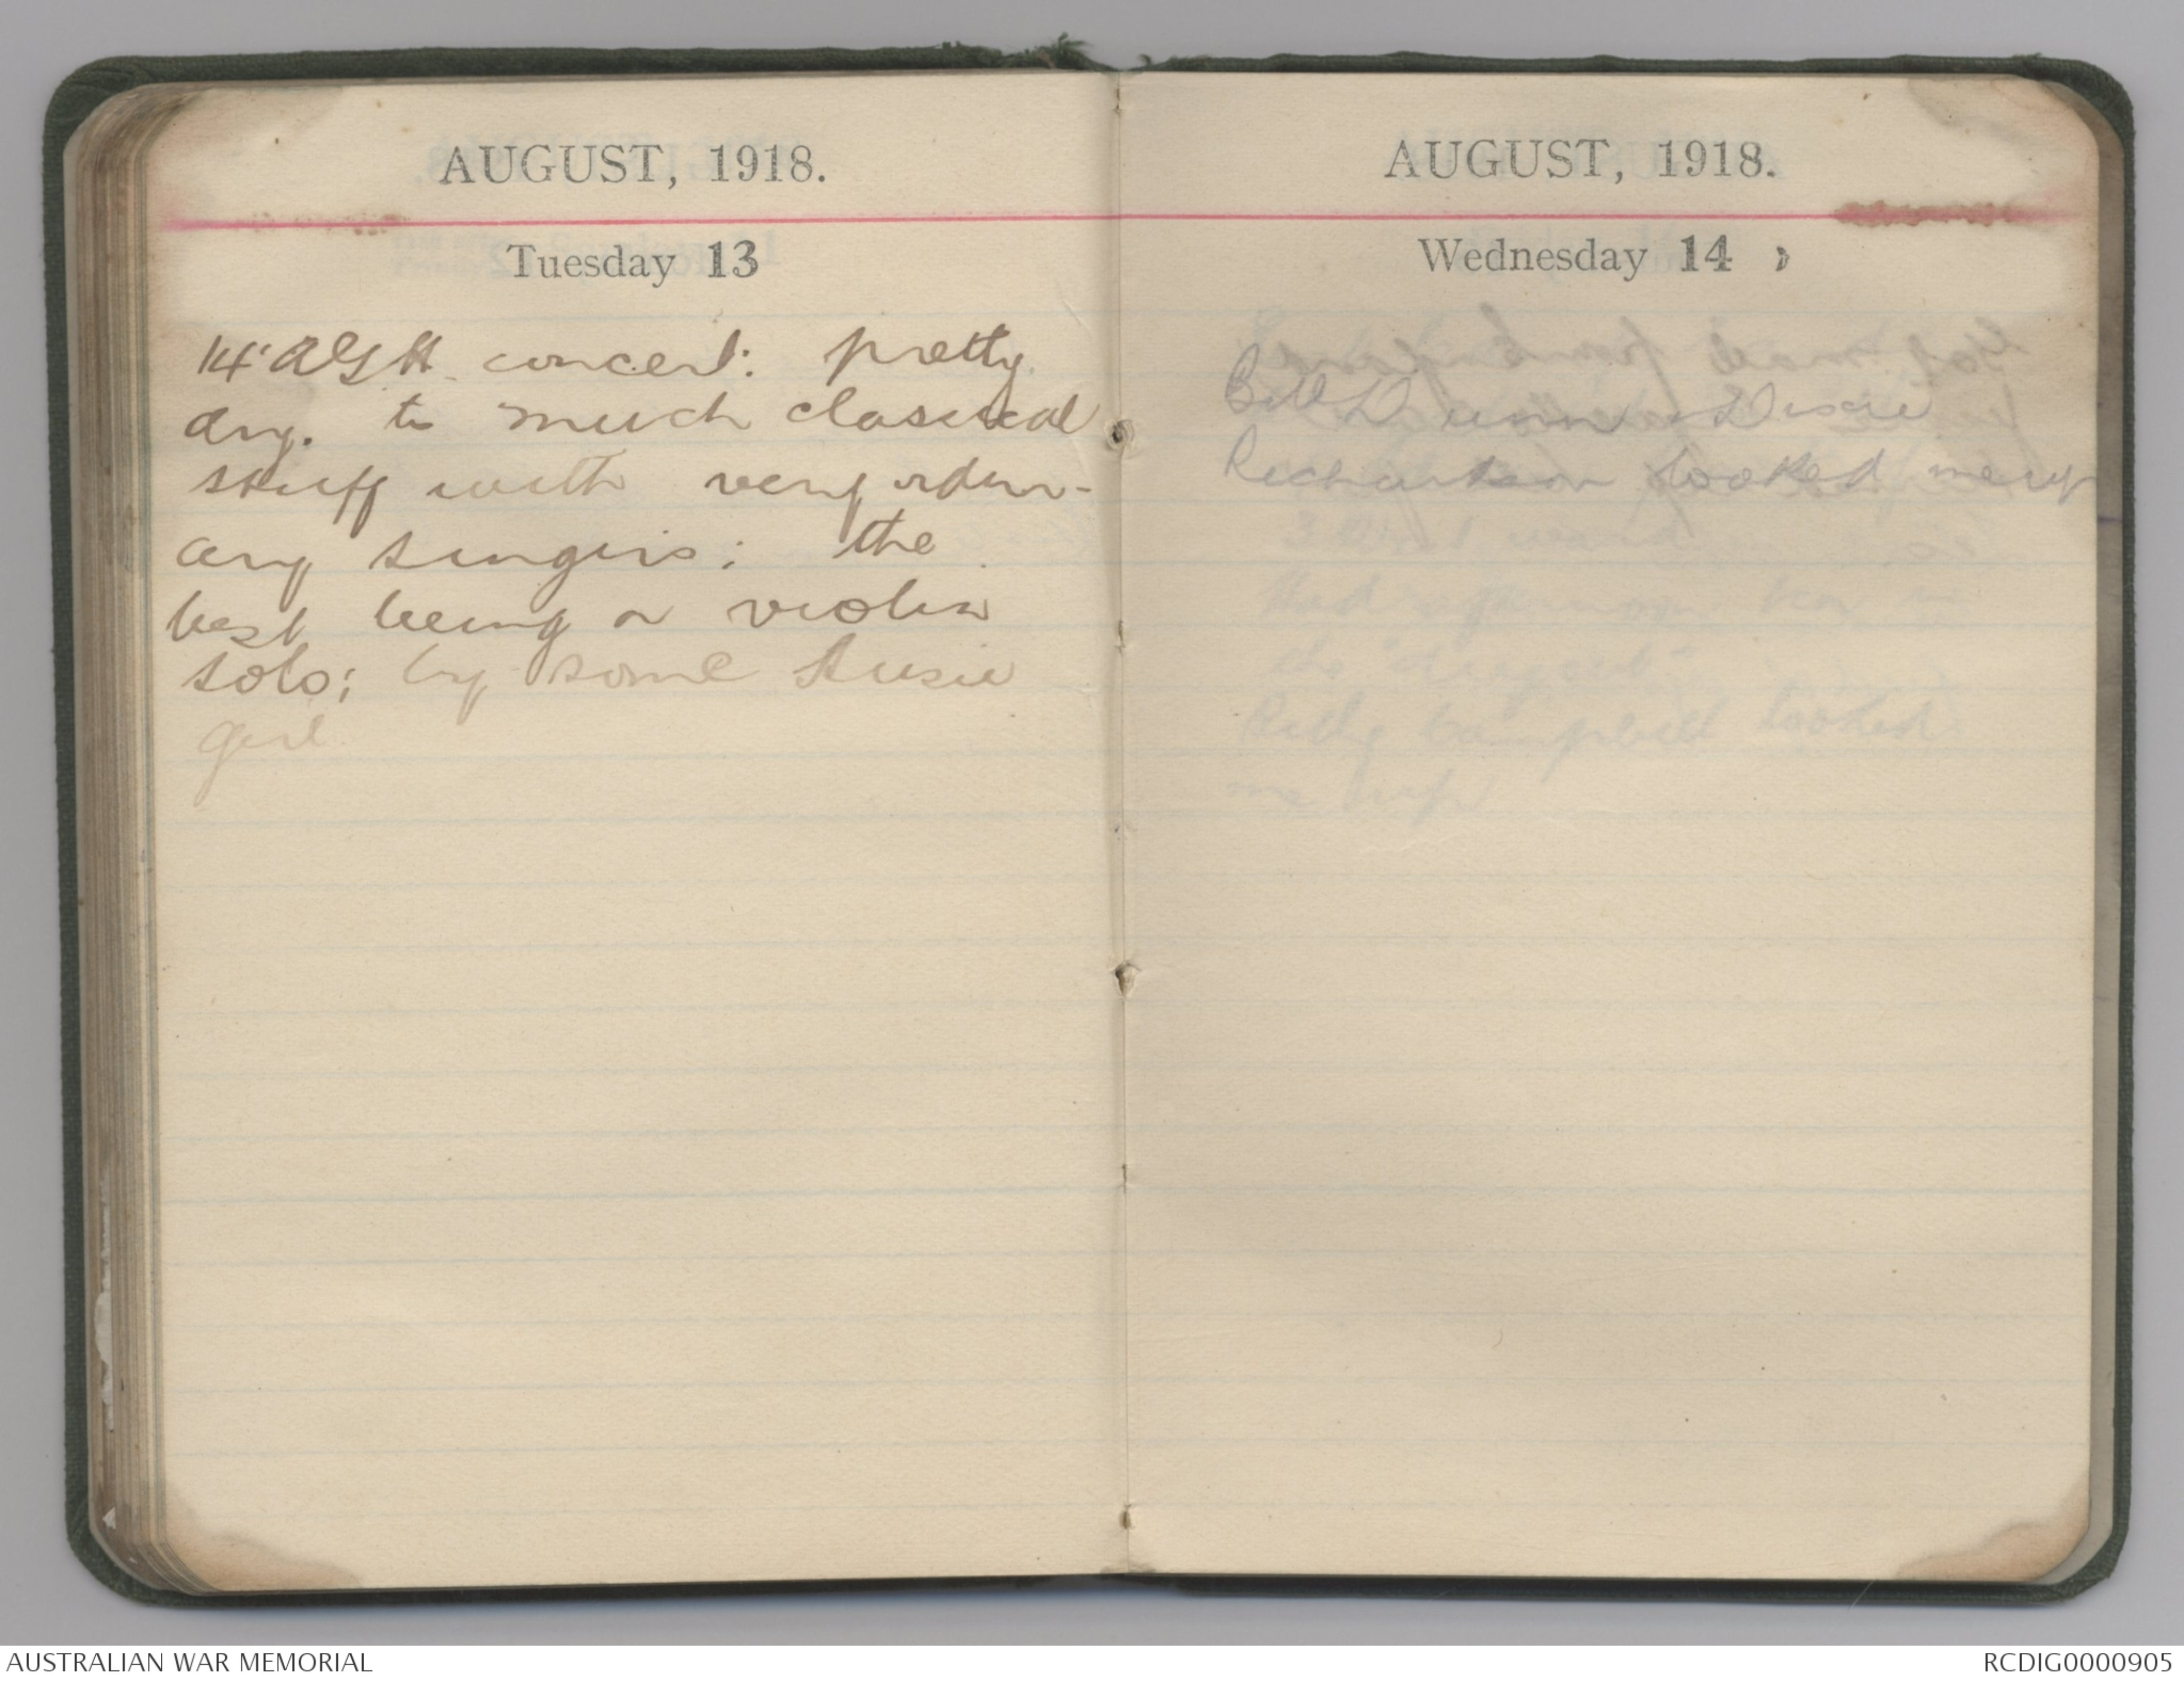 AUGUST, 1918.
Tuesday 13
14 AGH concert: pretty
dry. to much classical
stuff with very ordin-
ary singers; the
best being a violin
solo; by some Aussie
girl
AUGUST, 1918.
Wednesday 14
Bill Dunn &
Richardson looked me up
3
Had a
the
Billy Campbell looked
me up
AUSTRALIAN WAR MEMORIAL
RCDIG0000905